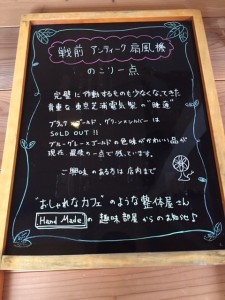 戦前 アンティーク扇風機
のこり一点
完璧に作動するものも少なくなってきた
貴重な東京芝浦電気製の"睡蓮"
ブラック ゴールド、グリーン×シルバー は
SOLD OUT!!
ブルーグレー×ゴールドの色味がかわいい品が
現在、最後の一点で残っています。
ご興味のある方は店内まで
"おしゃれなカフェ"のような整体屋さん
Hand Made の趣味部屋からのお知らせ♪